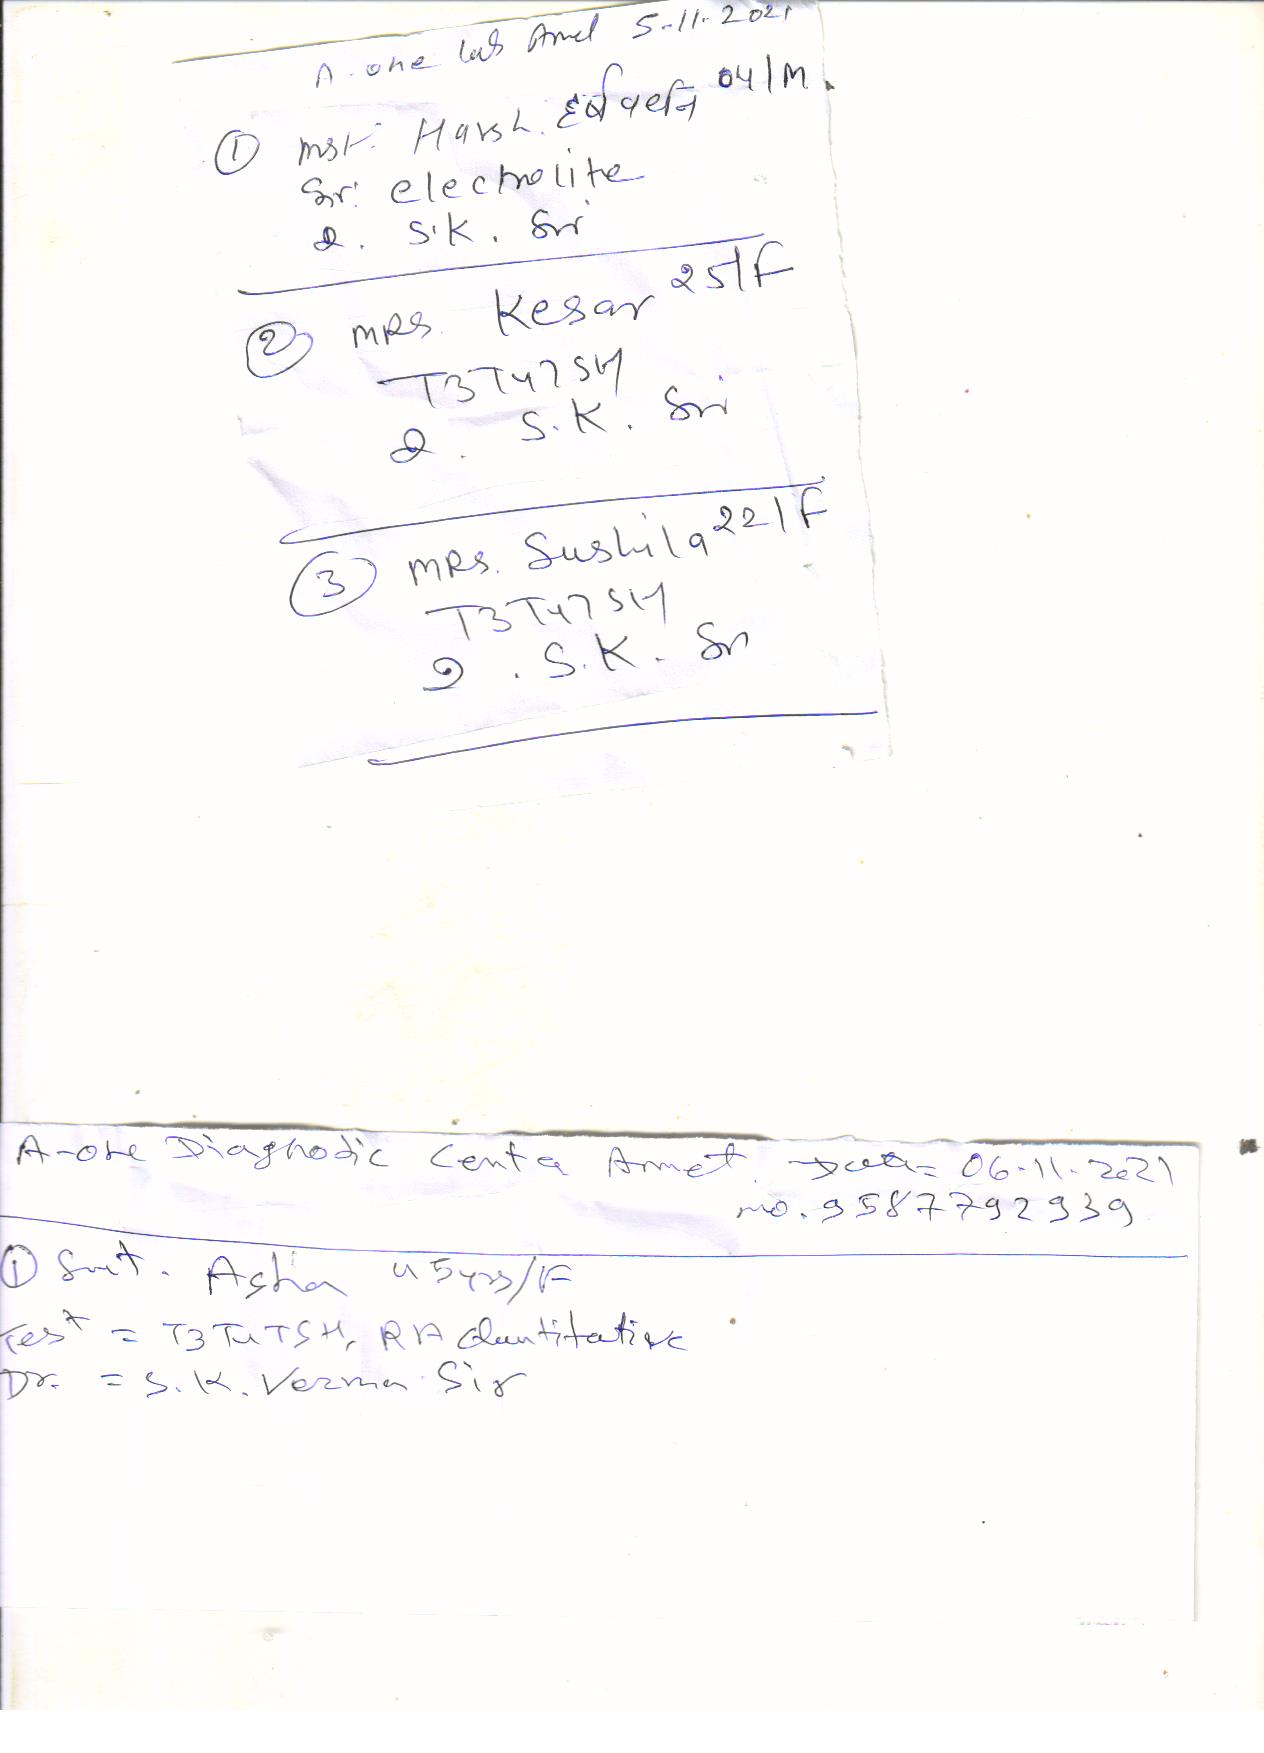 A-one Lab Amet 5-11-2021
① Mst. Harsh. हर्षवर्धन 04/M.
Sr. electrolite
D. S.K. Sir
② MRS. Kesar 25/F
T3T4TSH
D. S.K. Sir
③ MRS. Sushila 22/F
T3T4TSH
D. S.K. Sir
A-one Diagnodic Center Amet. Date= 06-11-2021
mo. 9587792939
① Smt. Asha 45yrs/F
Test = T3T4TSH, RA Quntitative
Dr. = S.K. Verma Sir